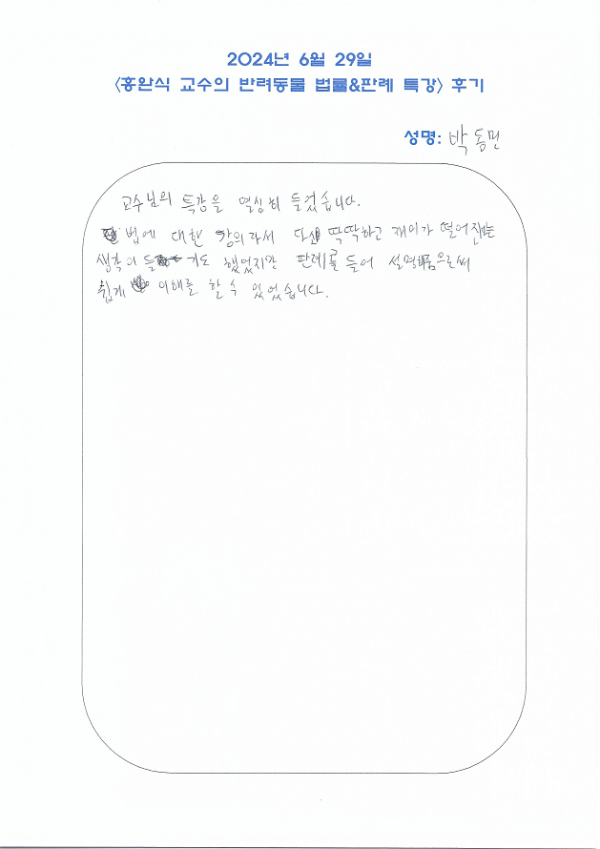 2024년 6월 29일
<홍완식 교수의 반려동물 법률&판례 특강> 후기
성명: 박동민
교수님의 특강을 열심히 들었습니다.
법에 대한 강의라서 다소 딱딱하고 재미가 떨어진다는
생각이 들기도 했었지만 판례를 들어 설명해줌으로써
쉽게 이해를 할 수 있었습니다.